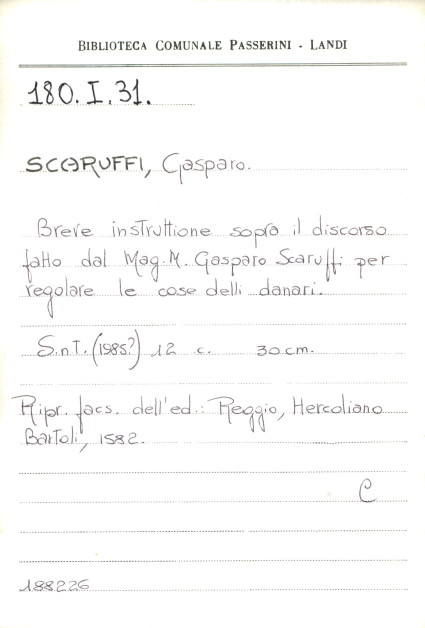 BIBLIOTECA COMUNALE PASSERINI - LANDI
180.I.31.
SCARUFFI, Gasparo.
Breve instruttione sopra il discorso
fatto dal Mag. M. Gasparo Scaruffi per
regolare le cose delli danari.
S.n.T. (1985?) 12 c. 30 cm.
Ripr. facs. dell'ed.: Reggio, Hercoliano
Bartoli, 1582.
C
188226